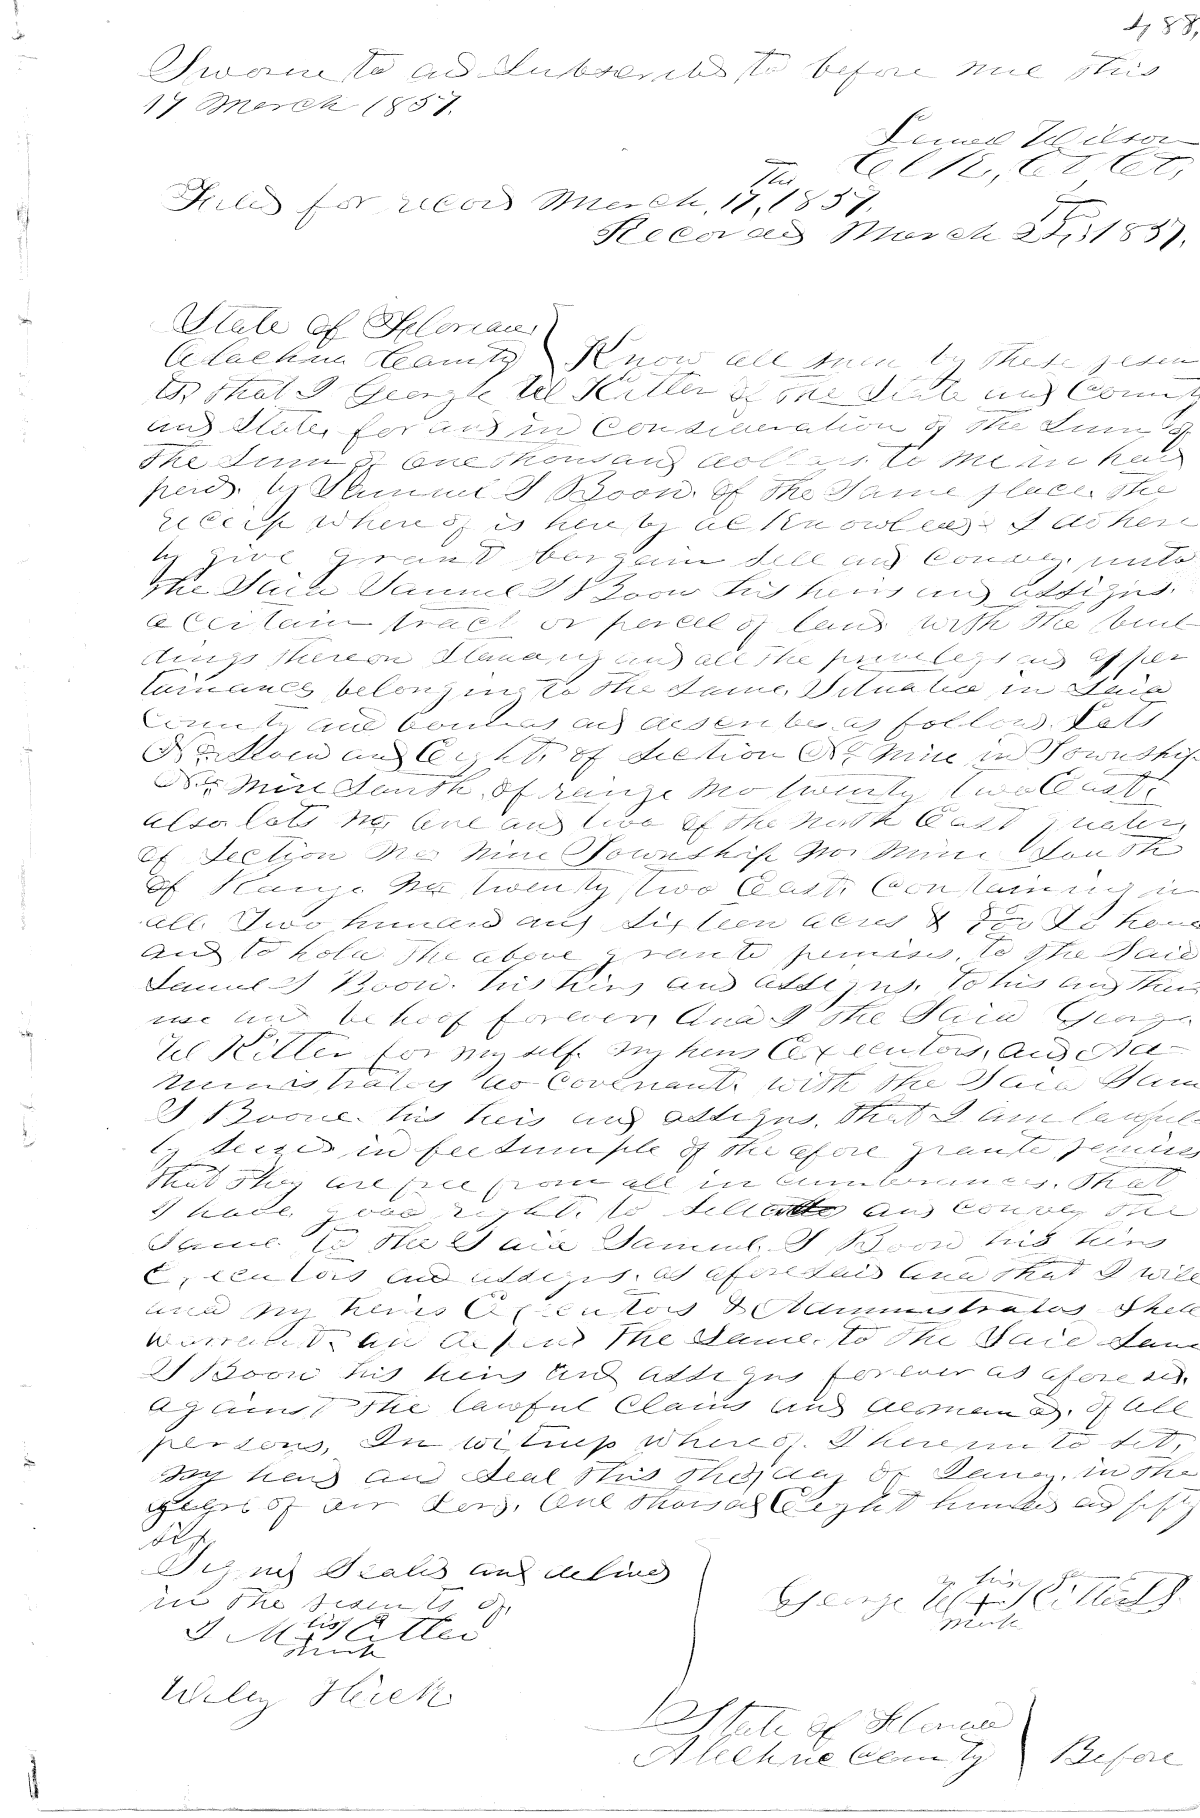 488,
Sworn to ad Subscribed to before me this
17 March 1857.
Wilson
Clk, Ct Ct,
Filed for record March, 17,th 1857.
Recorded March 1857.
State of Florida
Alachua County } Know all men by these presen
ts, that I George W Ritter of the State and County
and State, for and in consideration of the Sum of
the Sum of One thousand dollars to me in hand
paid. by Samuel S Boon. of the Same place. the
receip where of is here by acknowledg I do here
by give grant bargain sell and convey. unto
the Said Samuel S Boon his heirs and assigns.
a certain tract or parcel of land with the buil
dings thereon Standing and all the privilegs and apper
tainances belonging to the Same. Situated in Said
County and bounded and described as follows. Lots
No Seven and Eight. of Section No nine in Township
No nine South. of range No twenty two East.
also lots No One and two of the North East quarter
of Section No nine Township No nine South
of Range No twenty two East. Containing in
all. Two hundred and sixteen acres & To have
and to hold the above grante premises. to the Said
Samuel S Boon. his heirs and assigns. to his and their
use and behoof forever. And I the Said George
W Ritter for my self. my heirs Executors, and Ad-
ministrators do covenant. with the Said Sam
S Boone. his heirs and assigns, that I am lawful-
ly seized in fee simple of the afore grante premises
that they are free from all in cumbrances. that
I have good right. to sell and convey the
Same to the Said Samuel. S Boon his heirs
Executors and assigns. as aforesaid and that I will
and my heirs Executors & Administrators Shall
warrant. an defend the Same. to the Said Sam
S Boon his heirs and assigns forever as afore sd.
against the lawful Claims and demands. of all
persons, In witness where of. I here unto set,
my hand and Seal this the day of in the
year of our Lord. One thousad Eight hundred and fifty
six,
Signed Sealed and delived
in the presents of.
his
George W + Ritter
mark
his
S M + Ritter
mark
Wiley Hick
State of Florida
Alachua County } Before